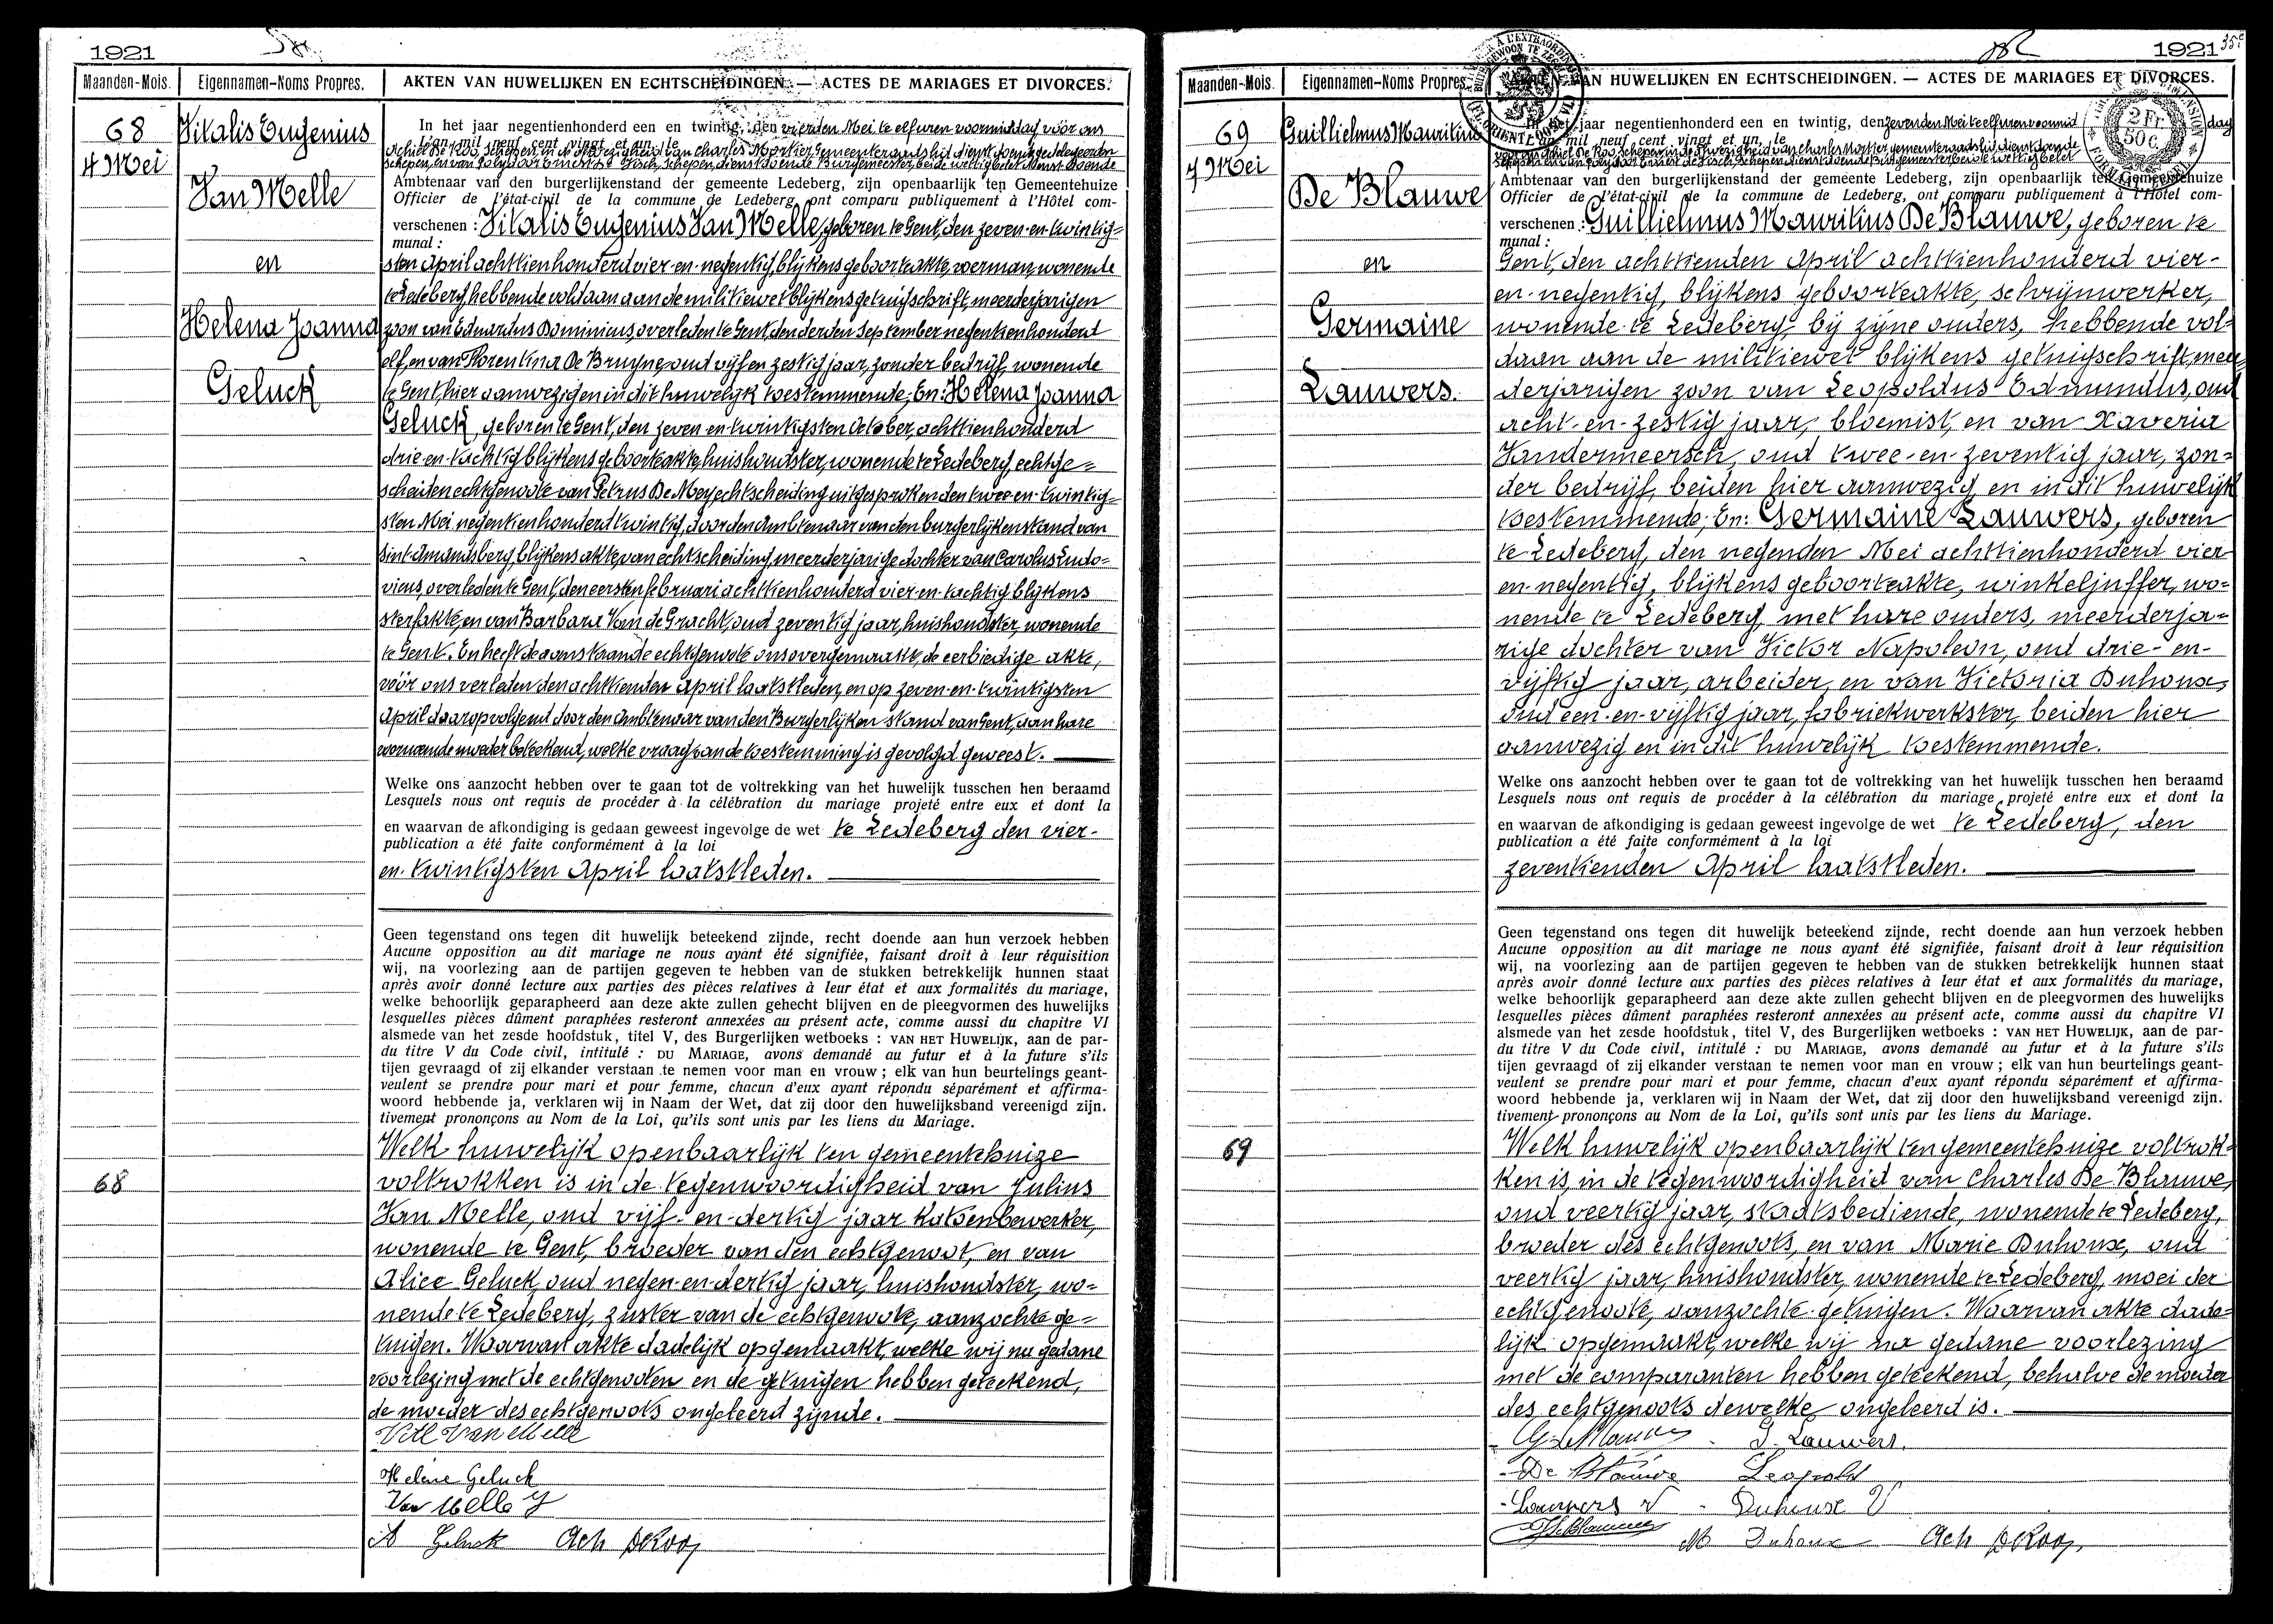 1921
Maanden-Mois.
Eigennamen-Noms Propres.
AKTEN VAN HUWELIJKEN EN ECHTSCHEIDINGEN. — ACTES DE MARIAGES ET DIVORCES.
68
4 Mei
Vitalis Eugenius
Van Melle
en
Helena Joanna
Geluck
In het jaar negentienhonderd een en twintig, den vierden Mei te elf uren voormiddag vóór ons
L'an mil neuf cent vingt et un, le
Achiel De Roo, schepen, in de afwezigheid van Charles Mortier Gemeenteraadslid dienstdoende
schepen, en van Polydoor Ernest De Visch, schepen, dienstdoende Burgemeester, beide wettig belet dienstdoende
Ambtenaar van den burgerlijkenstand der gemeente Ledeberg, zijn openbaarlijk ten Gemeentehuize
Officier de l'état-civil de la commune de Ledeberg ont comparu publiquement à l'Hôtel com-
verschenen : Vitalis Eugenius Van Melle, geboren te Gent, den zeven-en-twintig=
munal :
sten April achttienhonderd vier-en-negentig, blijkens geboorteakte, voerman, wonende
te Ledeberg, hebbende voldaan aan de militiewet blijkens getuigschrift, meerderjarigen
zoon van Eduardus Dominicus, overleden te Gent, den derden September negentienhonderd
elf, en van Florentina De Bruyne, oud vijf en zestig jaar, zonder bedrijf, wonende
te Gent, hier aanwezig en in dit huwelijk toestemmende; En: Helena Joanna
Geluck, geboren te Gent, den zeven-en-twintigsten October, achttienhonderd
drie-en-tachtig blijkens geboorteakte, huishoudster, wonende te Ledeberg, echtge=
scheiden echtgenoote van Petrus De Mey, echtscheiding uitgesproken den twee-en-twintig=
sten Mei negentienhonderd twintig, door den Ambtenaar van den burgerlijken stand van
Sint-Amandsberg, blijkens akte van echtscheiding, meerderjarige dochter van Carolus Ludo=
vicus, overleden te Gent, den eersten februari achttienhonderd vier-en-tachtig blijkens
sterfakte, en van Barbara Van de Gracht, oud zeventig jaar, huishoudster, wonende
te Gent. En heeft de aanstaande echtgenoote ons overgemaakt, de eerbiedige akte,
vóór ons verleden den achttienden April laatstleden, en op zeven-en-twintigsten
April daaropvolgend door den Ambtenaar van den Burgerlijken stand van Gent, aan hare
moeder beteekend, welke vraag van de toestemming is gevolgd geweest.
Welke ons aanzocht hebben over te gaan tot de voltrekking van het huwelijk tusschen hen beraamd
Lesquels nous ont requis de procéder à la célébration du mariage projeté entre eux et dont la
en waarvan de afkondiging is gedaan geweest ingevolge de wet te Ledeberg den vier-
publication a été faite conformément à la loi
en-twintigsten April laatstleden.
Geen tegenstand ons tegen dit huwelijk beteekend zijnde, recht doende aan hun verzoek hebben
Aucune opposition au dit mariage ne nous ayant été signifiée, faisant droit à leur réquisition
wij, na voorlezing aan de partijen gegeven te hebben van de stukken betrekkelijk hunnen staat
après avoir donné lecture aux parties des pièces relatives à leur état et aux formalités du mariage,
welke behoorlijk geparapheerd aan deze akte zullen gehecht blijven en de pleegvormen des huwelijks
lesquelles pièces dûment paraphées resteront annexées au présent acte, comme aussi du chapitre VI
alsmede van het zesde hoofdstuk, titel V, des Burgerlijken wetboeks : VAN HET HUWELIJK, aan de par-
du titre V du Code civil, intitulé : DU MARIAGE, avons demandé au futur et à la future s'ils
tijen gevraagd of zij elkander verstaan te nemen voor man en vrouw ; elk van hun beurtelings geant-
veulent se prendre pour mari et pour femme, chacun d'eux ayant répondu séparément et affirma-
woord hebbende ja, verklaren wij in Naam der Wet, dat zij door den huwelijksband vereenigd zijn.
tivement prononçons au Nom de la Loi, qu'ils sont unis par les liens du Mariage.
68
Welk huwelijk openbaarlijk ten gemeentehuize
voltrokken is in de tegenwoordigheid van Julius
Van Melle, oud vijf-en-dertig jaar katoenbewerker,
wonende te Gent, broeder van den echtgenoot, en van
Alice Geluck, oud negen-en-dertig jaar, huishoudster, wo=
nende te Ledeberg, zuster van de echtgenoote, aanzochte ge=
tuigen. Waarvan akte dadelijk opgemaakt, welke wij na gedane
voorlezing met de echtgenoten en de getuigen hebben geteekend,
de moeder des echtgenoots ongeleerd zijnde.
Vitl Van Melle
Helene Geluck
Van Melle J
A Geluck Ach DeRoo
1921
35e
Maanden-Mois.
Eigennamen-Noms Propres.
AKTEN VAN HUWELIJKEN EN ECHTSCHEIDINGEN. — ACTES DE MARIAGES ET DIVORCES.
2 Fr. 50 c.
69
7 Mei
Guillielmus Mauritius
De Blauwe
en
Germaine
Lauwers.
In het jaar negentienhonderd een en twintig, den zevenden Mei te elf uren voormid
dag
L'an mil neuf cent vingt et un, le
voor ons Achiel De Roo, schepen in de afwezigheid van Charles Mortier gemeenteraadslid dienstdoende
schepen en van Polydoor Ernest De Visch, schepen dienstdoende Burgemeester beide wettig belet
Ambtenaar van den burgerlijkenstand der gemeente Ledeberg, zijn openbaarlijk ten Gemeentehuize
Officier de l'état-civil de la commune de Ledeberg, ont comparu publiquement à l'Hôtel com-
verschenen : Guillielmus Mauritius De Blauwe, geboren te
munal :
Gent, den achttienden April achttienhonderd vier-
en-negentig, blijkens geboorteakte, schrijnwerker,
wonende te Ledeberg, bij zijne ouders, hebbende vol=
daan aan de militiewet blijkens getuigschrift, meer=
derjarigen zoon van Leopoldus Edmundus, oud
acht-en-zestig jaar, bloemist, en van Xaveria
Vandermeersch, oud twee-en-zeventig jaar, zon=
der bedrijf, beiden hier aanwezig en in dit huwelijk
toestemmende; En: Germaine Lauwers, geboren
te Ledeberg, den negenden Mei achttienhonderd vier
en-negentig, blijkens geboorteakte, winkeljuffer, wo=
nende te Ledeberg, met hare ouders, meerderja=
rige dochter van Victor Napoleon, oud drie-en-
vijftig jaar, arbeider, en van Victoria Duhoux,
oud een-en-vijftig jaar, fabriekwerkster, beiden hier
aanwezig en in dit huwelijk toestemmende.
Welke ons aanzocht hebben over te gaan tot de voltrekking van het huwelijk tusschen hen beraamd
Lesquels nous ont requis de procéder à la célébration du mariage projeté entre eux et dont la
en waarvan de afkondiging is gedaan geweest ingevolge de wet te Ledeberg, den
publication a été faite conformément à la loi
zeventienden April laatstleden.
Geen tegenstand ons tegen dit huwelijk beteekend zijnde, recht doende aan hun verzoek hebben
Aucune opposition au dit mariage ne nous ayant été signifiée, faisant droit à leur réquisition
wij, na voorlezing aan de partijen gegeven te hebben van de stukken betrekkelijk hunnen staat
après avoir donné lecture aux parties des pièces relatives à leur état et aux formalités du mariage,
welke behoorlijk geparapheerd aan deze akte zullen gehecht blijven en de pleegvormen des huwelijks
lesquelles pièces dûment paraphées resteront annexées au présent acte, comme aussi du chapitre VI
alsmede van het zesde hoofdstuk, titel V, des Burgerlijken wetboeks : VAN HET HUWELIJK, aan de par-
du titre V du Code civil, intitulé : DU MARIAGE, avons demandé au futur et à la future s'ils
tijen gevraagd of zij elkander verstaan te nemen voor man en vrouw ; elk van hun beurtelings geant-
veulent se prendre pour mari et pour femme, chacun d'eux ayant répondu séparément et affirma-
woord hebbende ja, verklaren wij in Naam der Wet, dat zij door den huwelijksband vereenigd zijn.
tivement prononçons au Nom de la Loi, qu'ils sont unis par les liens du Mariage.
69
Welk huwelijk openbaarlijk ten gemeentehuize voltrok=
ken is, in de tegenwoordigheid van Charles De Blauwe,
oud veertig jaar, staatsbediende, wonende te Ledeberg,
broeder des echtgenoots, en van Marie Duhoux, oud
veertig jaar, huishoudster, wonende te Ledeberg, moei der
echtgenoote, aanzochte getuigen. Waarvan akte dade=
lijk opgemaakt, welke wij na gedane voorlezing
met de comparanten hebben geteekend, behalve de moeder
des echtgenoots dewelke ongeleerd is.
G. Lauwers.
De Blauwe Leopold
Lauwers V Duhoux V
M Duhoux Ach DeRoo,